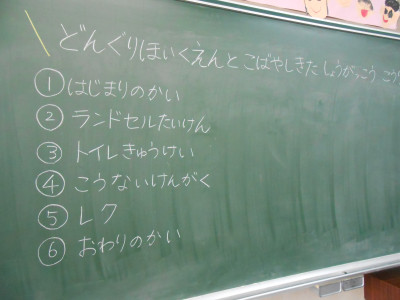 どんぐりほいくえんと こばやしきた しょうがっこう こうり
①はじまりのかい
②ランドセルたいけん
③トイレきゅうけい
④こうないけんがく
⑤レク
⑥おわりのかい